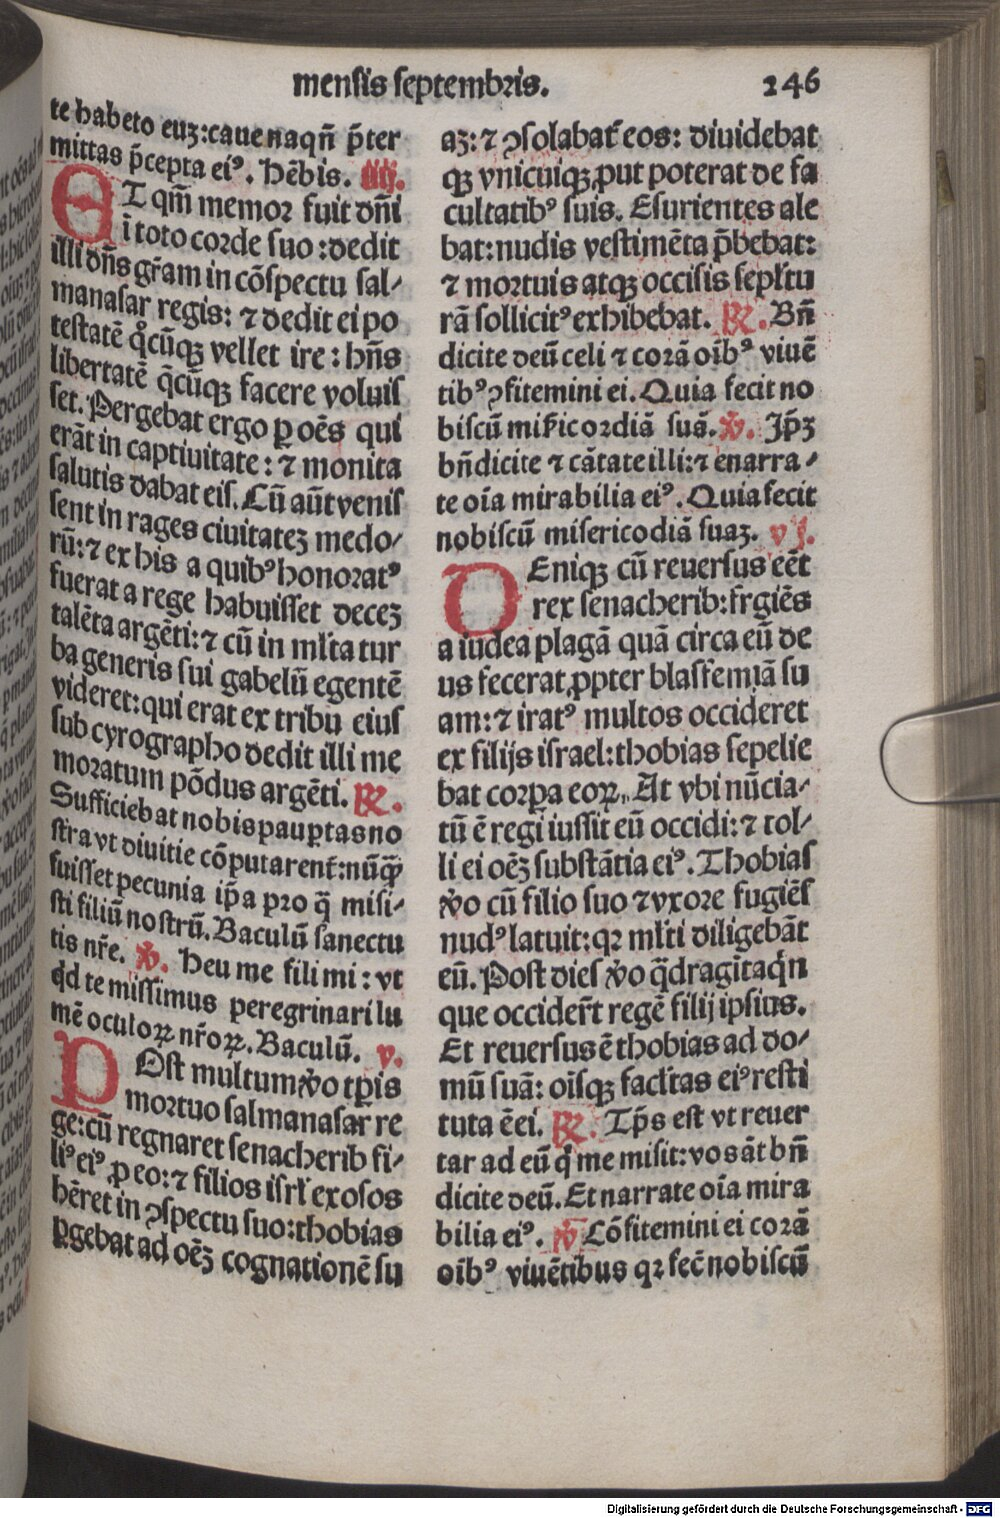 mensis septembris. 246
te habeto euꝫ:caue naqn̄ p̄ter
mittas p̄cepta eiꝰ. Hēbis. iiij.
ET qm̄ memor fuit dn̄i
ī toto corde suo :dedit
illi dn̄s gr̄am in cōspectu sal⸗
manasar regis: ⁊ dedit ei po
testatē q̊cūqꝫ vellet ire : hn̄s
libertatē q̄cūqꝫ facere voluis
set. Pergebat ergo ꝑ oēs qui
erāt in captiuitate: ⁊ monita
salutis dabat eis. Cū aūt venis
sent in rages ciuitateꝫ medo⸗
rū:⁊ ex his a quibꝰ honoratꝰ
fuerat a rege habuisset deceꝫ
talēta argēti:⁊ cū in ml̄ta tur
ba generis sui gabelū egentē
videret:qui erat ex tribu eius
sub cyrographo dedit illi me
moratum pōdus argēti. ℞.
Sufficiebat nobis paupꝑtas no
stra vt diuitie cōputarent̄:nūꝙ̄
fuisset pecunia ip̄a pro q̄ misi⸗
sti filiū nostrū. Baculū sanectu
tis nr̄e. ℣. Heu me fili mi : vt
qd te missimus peregrinari lu
mē oculoꝝ nr̄oꝝ. Baculū. v.
POst multum ꝟo tꝑis
mortuo salmanasar re
ge:cū regnaret senacherib fi⸗
liꝰ eiꝰ ꝓ eo:⁊ filios isrl̄ exosos
hēret in ꝯspectu suo:thobias
ꝑgebat ad oēꝫ cognationē su
aꝫ:⁊ ꝯsolabat̄ eos: diuidebat
qꝫ vnicuiqꝫ ꝓut poterat de fa
cultatibꝰ suis. Esurientes ale
bat:nudis vestimēta p̄bebat:
⁊ mortuis atqꝫ occisis sepl̄tu
rā sollicitꝰ exhibebat. ℞. Bn̄
dicite deū celi ⁊ corā oībꝰ viuē
tibꝰ ꝯfitemini ei. Quia fecit no
biscū mif̄icordiā suā. ℣. Ip̄ꝫ
bn̄dicite ⁊ cātate illi:⁊ enarra⸗
te oīa mirabilia eiꝰ. Quia fecit
nobiscū misericodiā suaꝫ. vj.
DEniqꝫ cū reuersus eēt
rex senacherib:fr̄giēs
a iudea plagā quā circa eū de
us fecerat ꝓpter blasfemiā su
am:⁊ iratꝰ multos occideret
ex filijs israel:thobias sepelie
bat corꝑa eoꝝ. At vbi nūcia⸗
tū ē regi iussit eū occidi:⁊ tol⸗
li ei oēꝫ substātia eiꝰ. Thobias
ꝟo cū filio suo ⁊ vxore fugiēs
nudꝰ latuit:qꝛ ml̄ti diligebāt
eū. Post dies ꝟo q̄dragītaqn̄
que occider̄t regē filij ipsius.
Et reuersus ē thobias ad do⸗
mū suā: oīsqꝫ facl̄tas eiꝰ resti
tuta ē ei. ℞. Tp̄s est vt reuer
tar ad eū q̇ me misit:vos āt bn̄
dicite deū. Et narrate oīa mira
bilia eiꝰ. ℣ Cōfitemini ei corā
oībꝰ viuētibus qꝛ fec̄ nobiscū
Digitalisierung gefördert durch die Deutsche Forschungsgemeinschaft - DFG